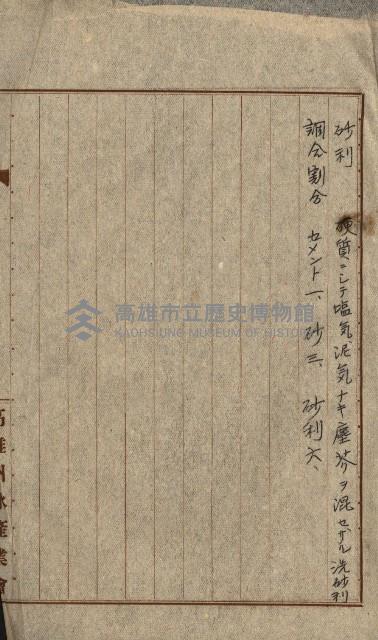 砂利　硬質ニシテ塩気泥気ナキ塵芥ヲ混セザル洗砂利
調合割合　セメント一、砂三、砂利六、
高雄州水産業會
高雄市立歷史博物館
KAOHSIUNG MUSEUM OF HISTORY